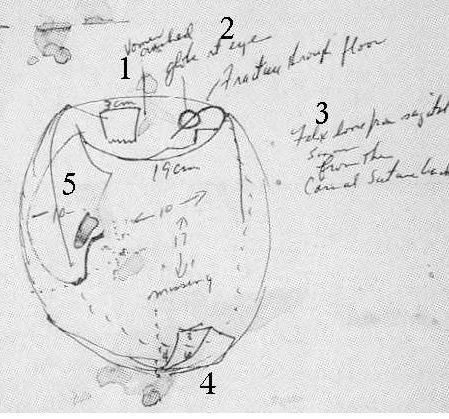 2
vomer
crushed
globe rt eye
1
Fracture through floor
3cm
3
Falx loose from sagittal
sinus
from the
Coronal suture back
19cm
5
-10-
← 10 →
17
missing
4